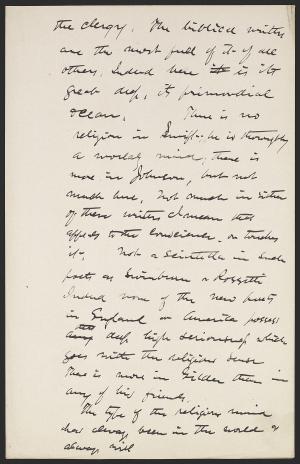 the clergy. The biblical writers
are the most full of it of all
others; indeed here is its
great deep, its primordial
ocean. There is no
religion in Swift; he is thoroughly
a worldly mind; there is
more in Johnson, but not
much here. Not much in either
of these writers I mean that
appeals to the conscience, or touches
it. Not a scintilla in such
poets as Swinburne & Rossetti
Indeed none of the new poets
in England or America possess
that deep high seriousness which
goes with the religious sense
There is more in Gilder than in
any of his friends.
The type of the religious mind
has always been in the world &
always will